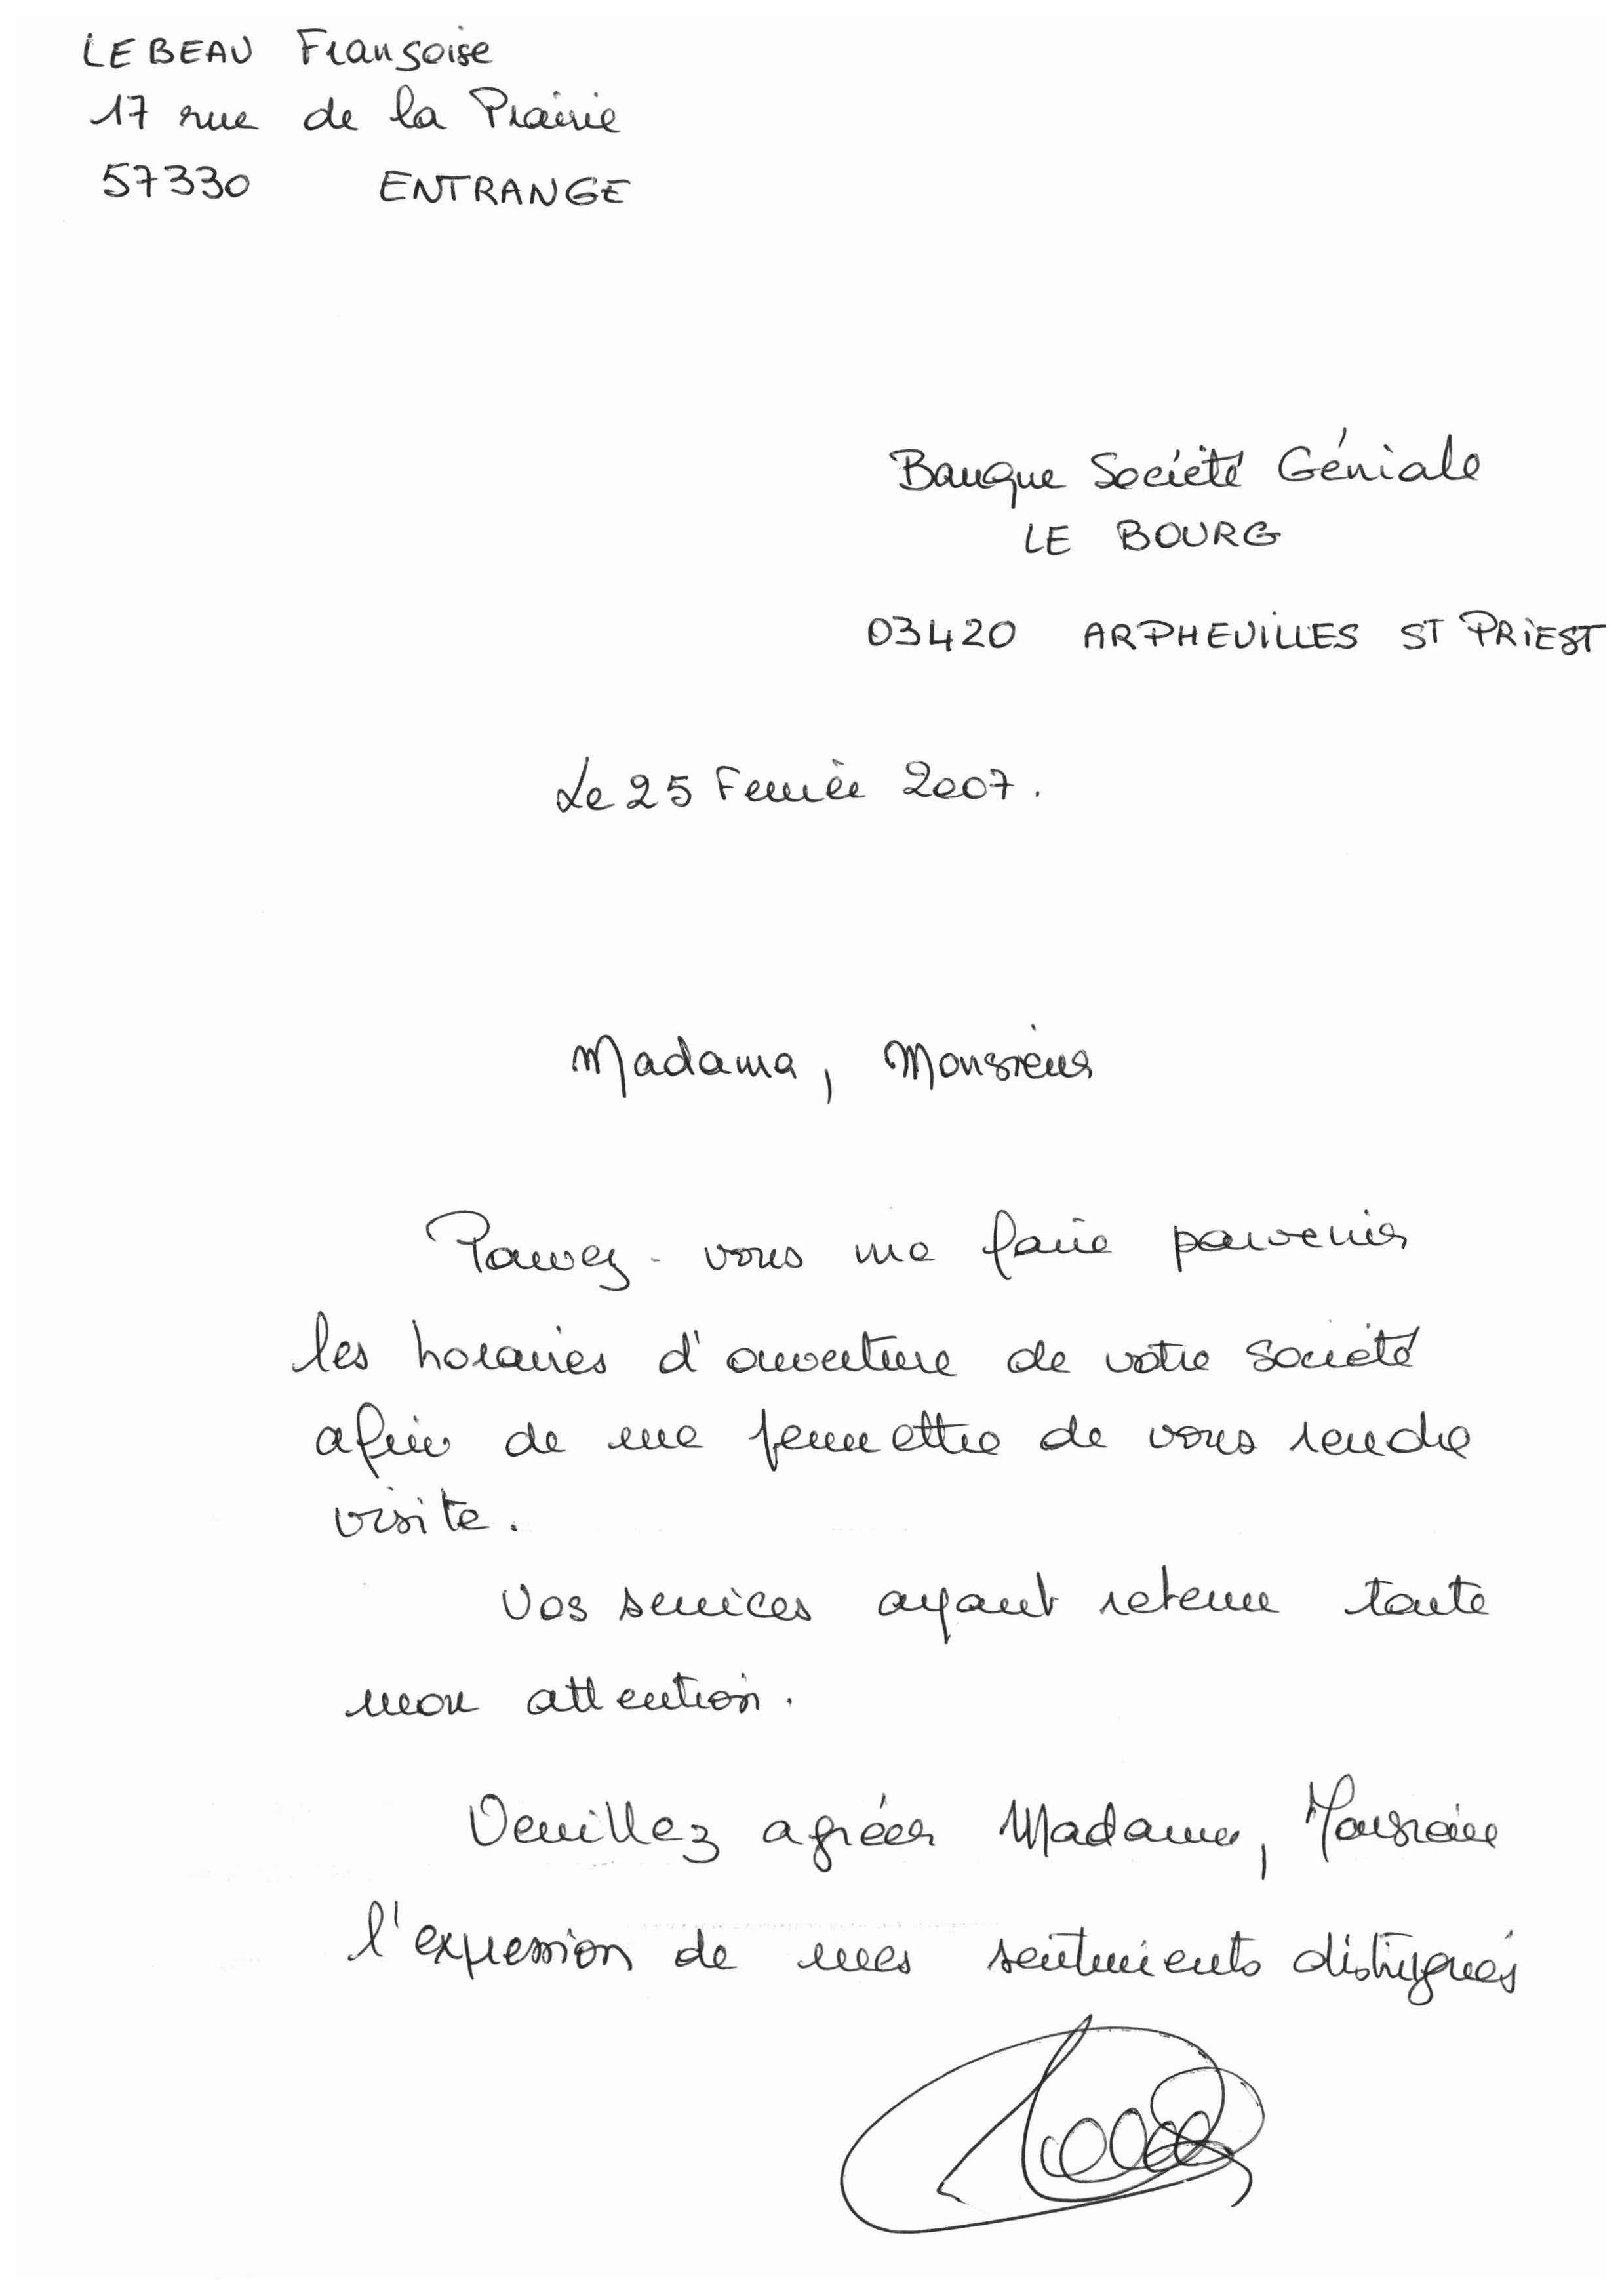 LEBEAU Françoise
17 rue de la Prairie
57330 ENTRANGE
Banque Société Géniale
LE BOURG
03420 ARPHEUILLES ST PRIEST
Le 25 Février 2007.
Madame, Monsieur
Pouvez-vous me faire parvenir
les horaires d'ouverture de votre société
afin de me permettre de vous rendre
visite.
Vos services ayant retenu toute
mon attention.
Veuillez agréer Madame, Monsieur
l'expression de mes sentiments distingués